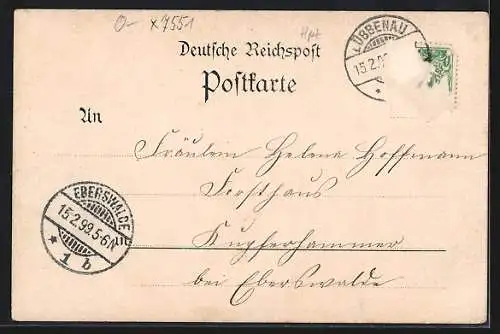 0- x 7551
Hpt
Deutsche Reichspost
Postkarte
LÜBBENAU
15.2.9
An
Fräulein Helena Hoffmann
Forsthaus
in Kupferhammer
bei Eberswalde
EBERSWALDE
15.2.99.5-6N
* 1 b